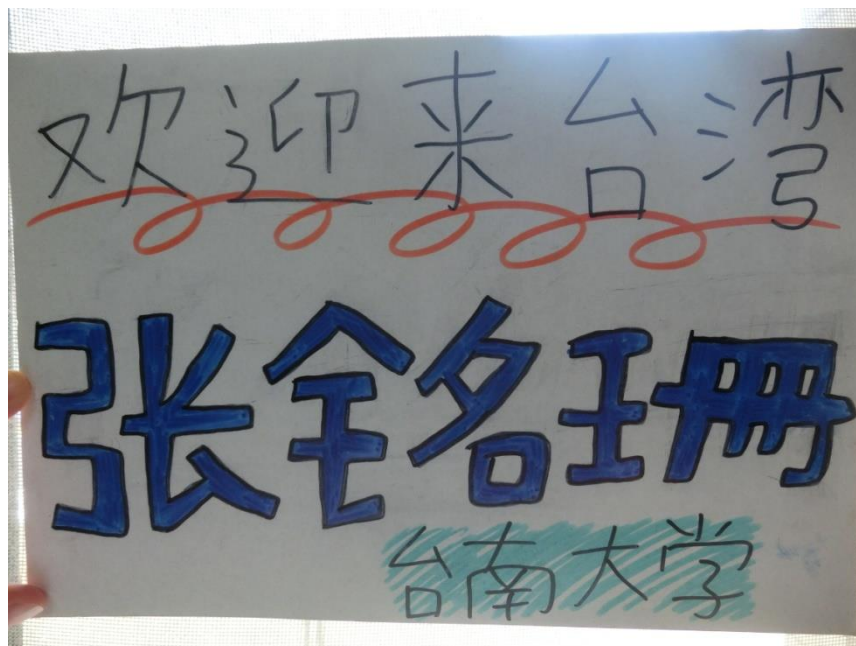 欢迎来台湾
张铭珊
台南大学